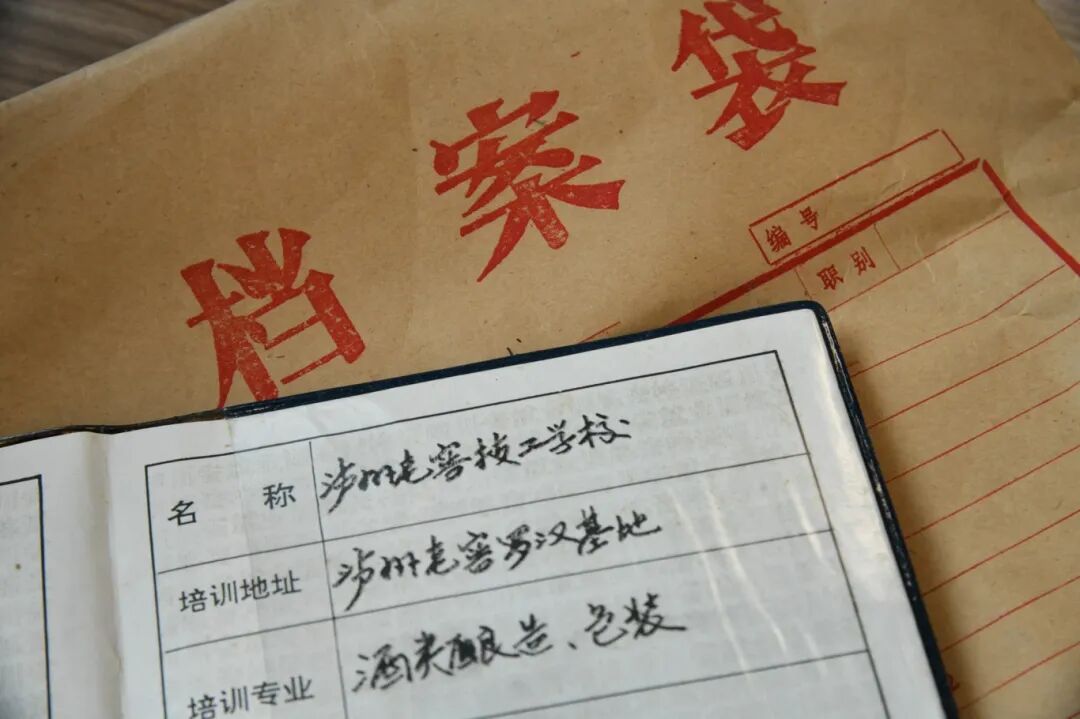 档案袋
编号
职别
名 称 泸州老窖技工学校
培训地址 泸州老窖罗汉基地
培训专业 酒类酿造、包装